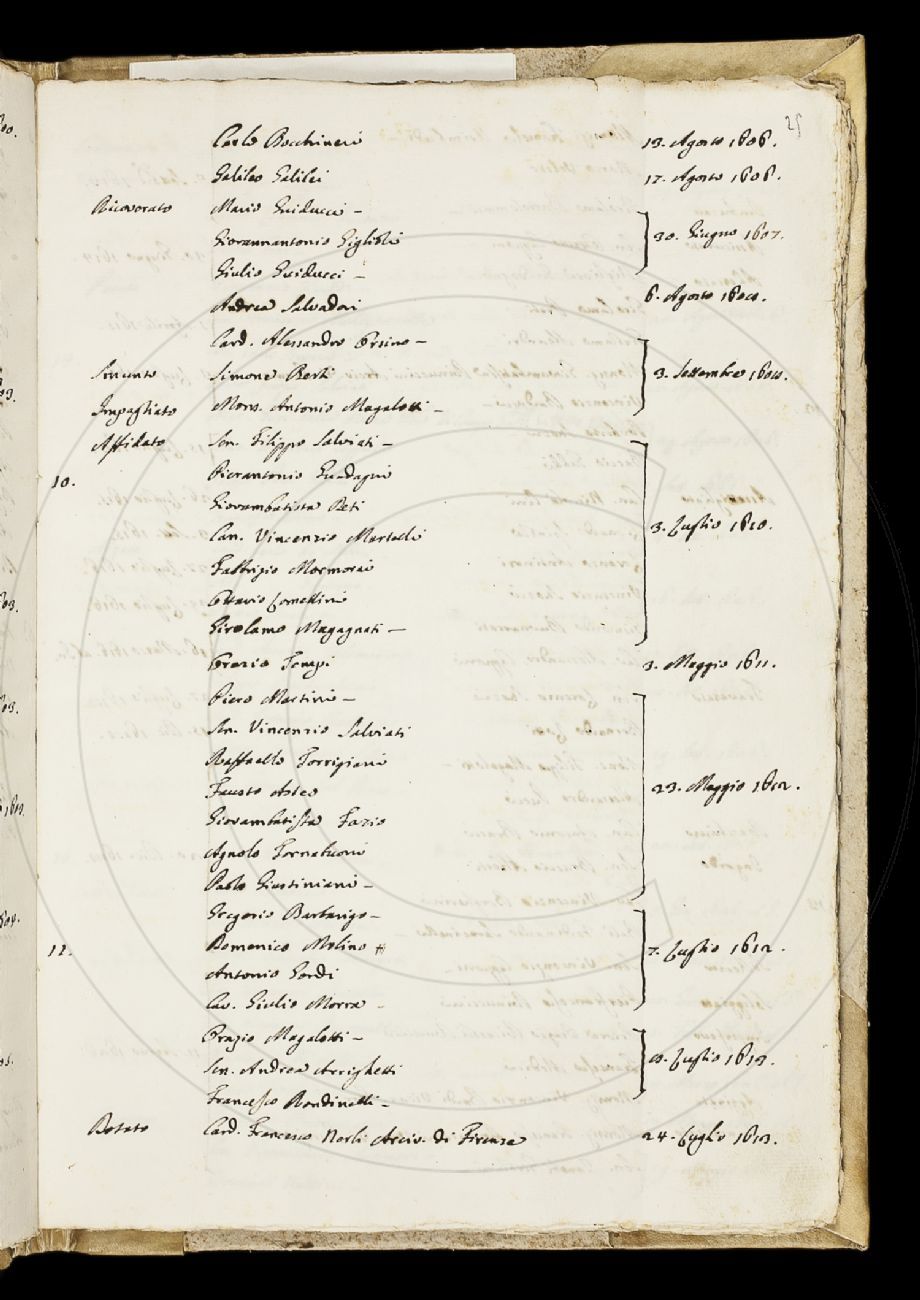 25
Carlo Bocchineri 13. Agosto 1606.
Galileo Galilei 17. Agosto 1606.
Ricovorato Mario Guiducci –
Giovannantonio Giglioli 30. Giugno 1607.
Giulio Guiducci –
Andrea Salvadori 6. Agosto
Card. Alessandro Orsino –
Simone Berti 3. Settembre
Impagliato Mons. Antonio Magalotti –
Affidato Sen. Filippo Salviati –
10. Pierantonio Guadagni
Giovambatista Deti
Can. Vincenzio Martelli 3. Luglio 1610.
Fabbrizio Mormorai
Ottavio Lomellini
Girolamo Magagnati –
Orazio Tempi 3. Maggio 1611.
Piero Martini –
Sen. Vincenzio Salviati
Raffaello Torrigiani
Fausto 23. Maggio 1612.
Giovambatista Fazio
Agnolo Tornabuoni
Paolo Giustiniani –
Gregorio Barbarigo –
12. Domenico Molino # 7. Luglio 1612.
Antonio Gondi
Cav. Giulio Morra –
Orazio Magalotti –
Sen. Andrea Arrighetti Luglio 1613.
Francesco Rondinelli –
Card. Francesco Nerli Arciv. di Firenze 24. Luglio 1613.